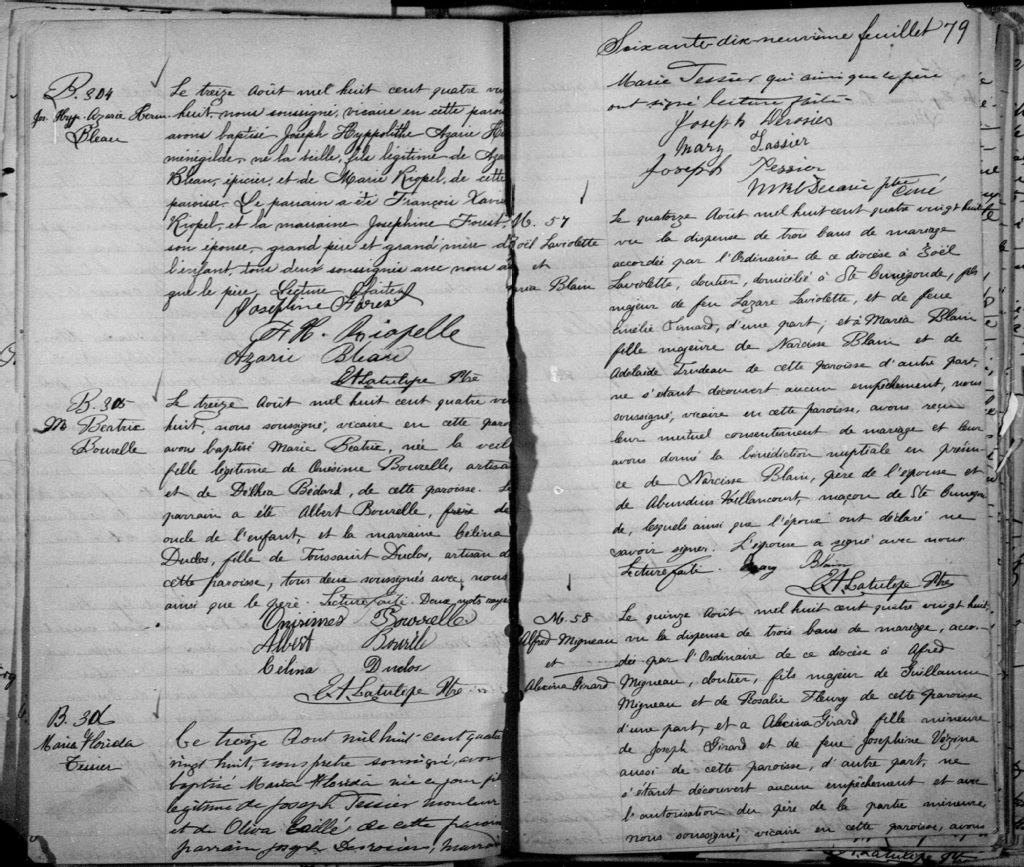 B. 304
Jos. Hyp. Azarie Herm.
Bleau
Le treize Août mil huit cent quatre vin
huit, nous soussigné, vicaire en cette paroi
avons baptisé Joseph Hyppolithe Azarie He
ménégilde, né la veille, fils légitime de Aza
Bleau, épicier, et de Marie Riopel, de cette
paroisse. Le parrain a été François Xavie
Riopel, et la marraine Josephine Forest,
son épouse, grand père et grand'mère d
l'enfant, tous deux soussignés avec nous a
que le père. Lecture faite.
Josephine Fores
F. X. Riopelle
Azarie Bleau
E.A. Latulipe Ptre
B. 305
M. Béatrix
Bourelle
Le treize Août mil huit cent quatre vin
huit, nous soussigné, vicaire en cette paro
avons baptisé Marie Béatrix, née la veil
fille légitime de Onésime Bourelle, artisa
et de Délhia Bédard, de cette paroisse. Le
parrain a été Albert Bourelle,
oncle de l'enfant, et la marraine Célina
Duclos, fille de Toussaint Duclos, artisan d
cette paroisse, tous deux soussignés avec nous
ainsi que le père. Lecture faite. Deux mots rayés
Onisimes Bourelle
Albert Bourelle
Célina Duclos
E.A. Latulipe Ptre
B. 306
Maria Florida
Tessier
Le treize Aout mil huit cent quatre
vingt huit, nous prêtre soussigné, avon
baptisé Maria Florida née ce jour fil
légitime de Joseph Tessier mouleur
et de Oliva Taillé de cette paroi
parrain Joseph Desrosiers, marrai
Soixante-dix-neuvième feuillet 79
Marie Tessier qui ainsi que le père
ont signé lecture faite
Joseph Derosies
Mary Tassier
Joseph Tessier
Décarie ptre Curé
M. 57
Zoël Laviolette
et
Maria Blain
Le quatorze Août mil huit cent quatre vingt huit
vu la dispense de trois bans de mariage
accordée par l'Ordinaire de ce diocèse à Zoël
Laviolette, cloutier, domicilié à Ste Cunégonde, fils
majeur de feu Lazare Laviolette, et de feue
Emélie Simard, d'une part; et à Maria Blain
fille majeure de Narcisse Blain et de
Adelaide Trudeau de cette paroisse d'autre part,
ne s'étant découvert aucun empêchement, nous
soussigné, vicaire en cette paroisse, avons reçu
leur mutuel consentement de mariage et leur
avons donné la bénédiction nuptiale en présen
ce de Narcisse Blain, père de l'épouse et
de Abundius Vaillancourt, maçon de Ste Cunégon
de, lesquels ainsi que l'époux ont déclaré ne
savoir signer. L'épouse a signé avec nous
Lecture faite. Mary Blain
E.A. Latulipe Ptre
M. 58
Alfred Migneau
et
Alexina Girard
Le quinze Août mil huit cent quatre vingt huit,
vu la dispense de trois bans de mariage, accor-
dée par l'Ordinaire de ce diocèse à Alfred
Migneau, cloutier, fils majeur de Guillaume
Migneau et de Rosalie Fleury de cette paroisse
d'une part, et a Alexina Girard fille mineure
de Joseph Girard et de feue Josephine Vézina
aussi de cette paroisse, d'autre part, ne
s'étant découvert aucun empêchement et avec
l'autorisation du père de la partie mineure,
nous soussigné, vicaire en cette paroisse, avons
E.A. Latulipe Ptre